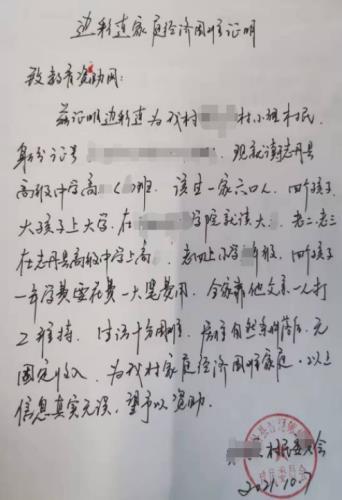 边彩莲家庭经济困难证明
致教育资助网：
兹证明边彩莲为我村 村小组村民，
身份证号 ，现就读志丹县
高级中学高 （ ）班，该生一家六口人，四个孩子
大孩子上大学，在 学院就读大 ，老二老三
在志丹县高级中学上高 ，老四上小学 年级，四个孩子
一年学费生活费一大笔费用，全家靠他父亲一人打
工维持，生活十分困难，房子自然条件落后，无
固定收入，为我村家庭经济困难家庭。以上
信息真实无误，望予以资助。
村民委员会
2021.10.7